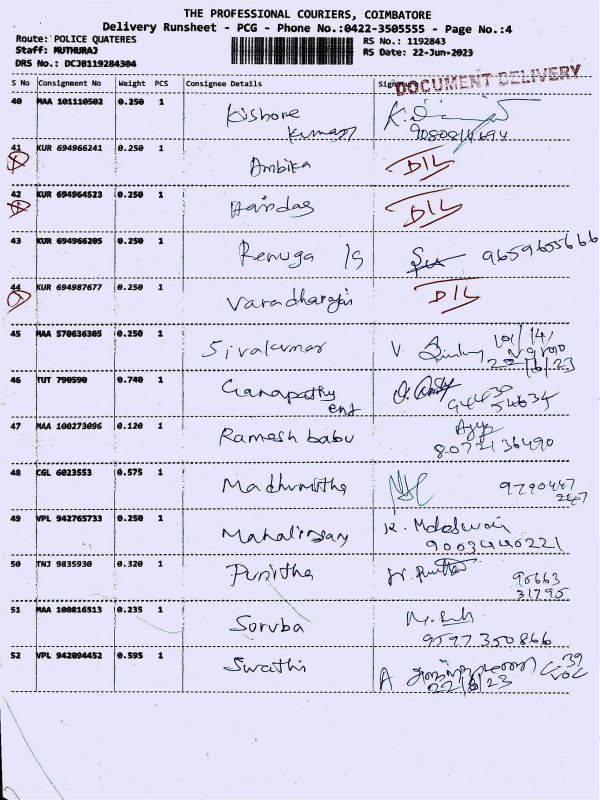 THE PROFESSIONAL COURIERS, COIMBATORE
Delivery Runsheet - PCG - Phone No.:0422-3505555 - Page No.:4
Route: POLICE QUATERES
RS No.: 1192843
Staff: MUTHURAJ
RS Date: 22-Jun-2023
DRS No.: DCJB119284304
DOCUMENT DELIVERY
S No Consignment No Weight PCS Consignee Details
40 MAA 101110502 0.250 1 Kishore
Kumar
41 KUR 694966241 0.250 1 Ambika D/L
42 KUR 694964523 0.250 1 Haridas D/L
43 KUR 694966205 0.250 1 Renuga 9659655666
44 KUR 694987677 0.250 1 Varadharajan D/L
45 MAA 570636305 0.250 1 Sivakumar V.
46 TUT 790590 0.740 1 Ganapathy
ent
94430
54634
47 MAA 100273096 0.120 1 Ramesh babu
8072136490
48 CGL 6023553 0.575 1 Madhumitha 9790447
2247
49 VPL 942765733 0.250 1 K.
9003440221
50 TNJ 9835930 0.320 1 Punitha 90663
31795
51 MAA 100816513 0.235 1 Suruba
9597350866
52 VPL 942094452 0.595 1 Swathi A
22/6/23